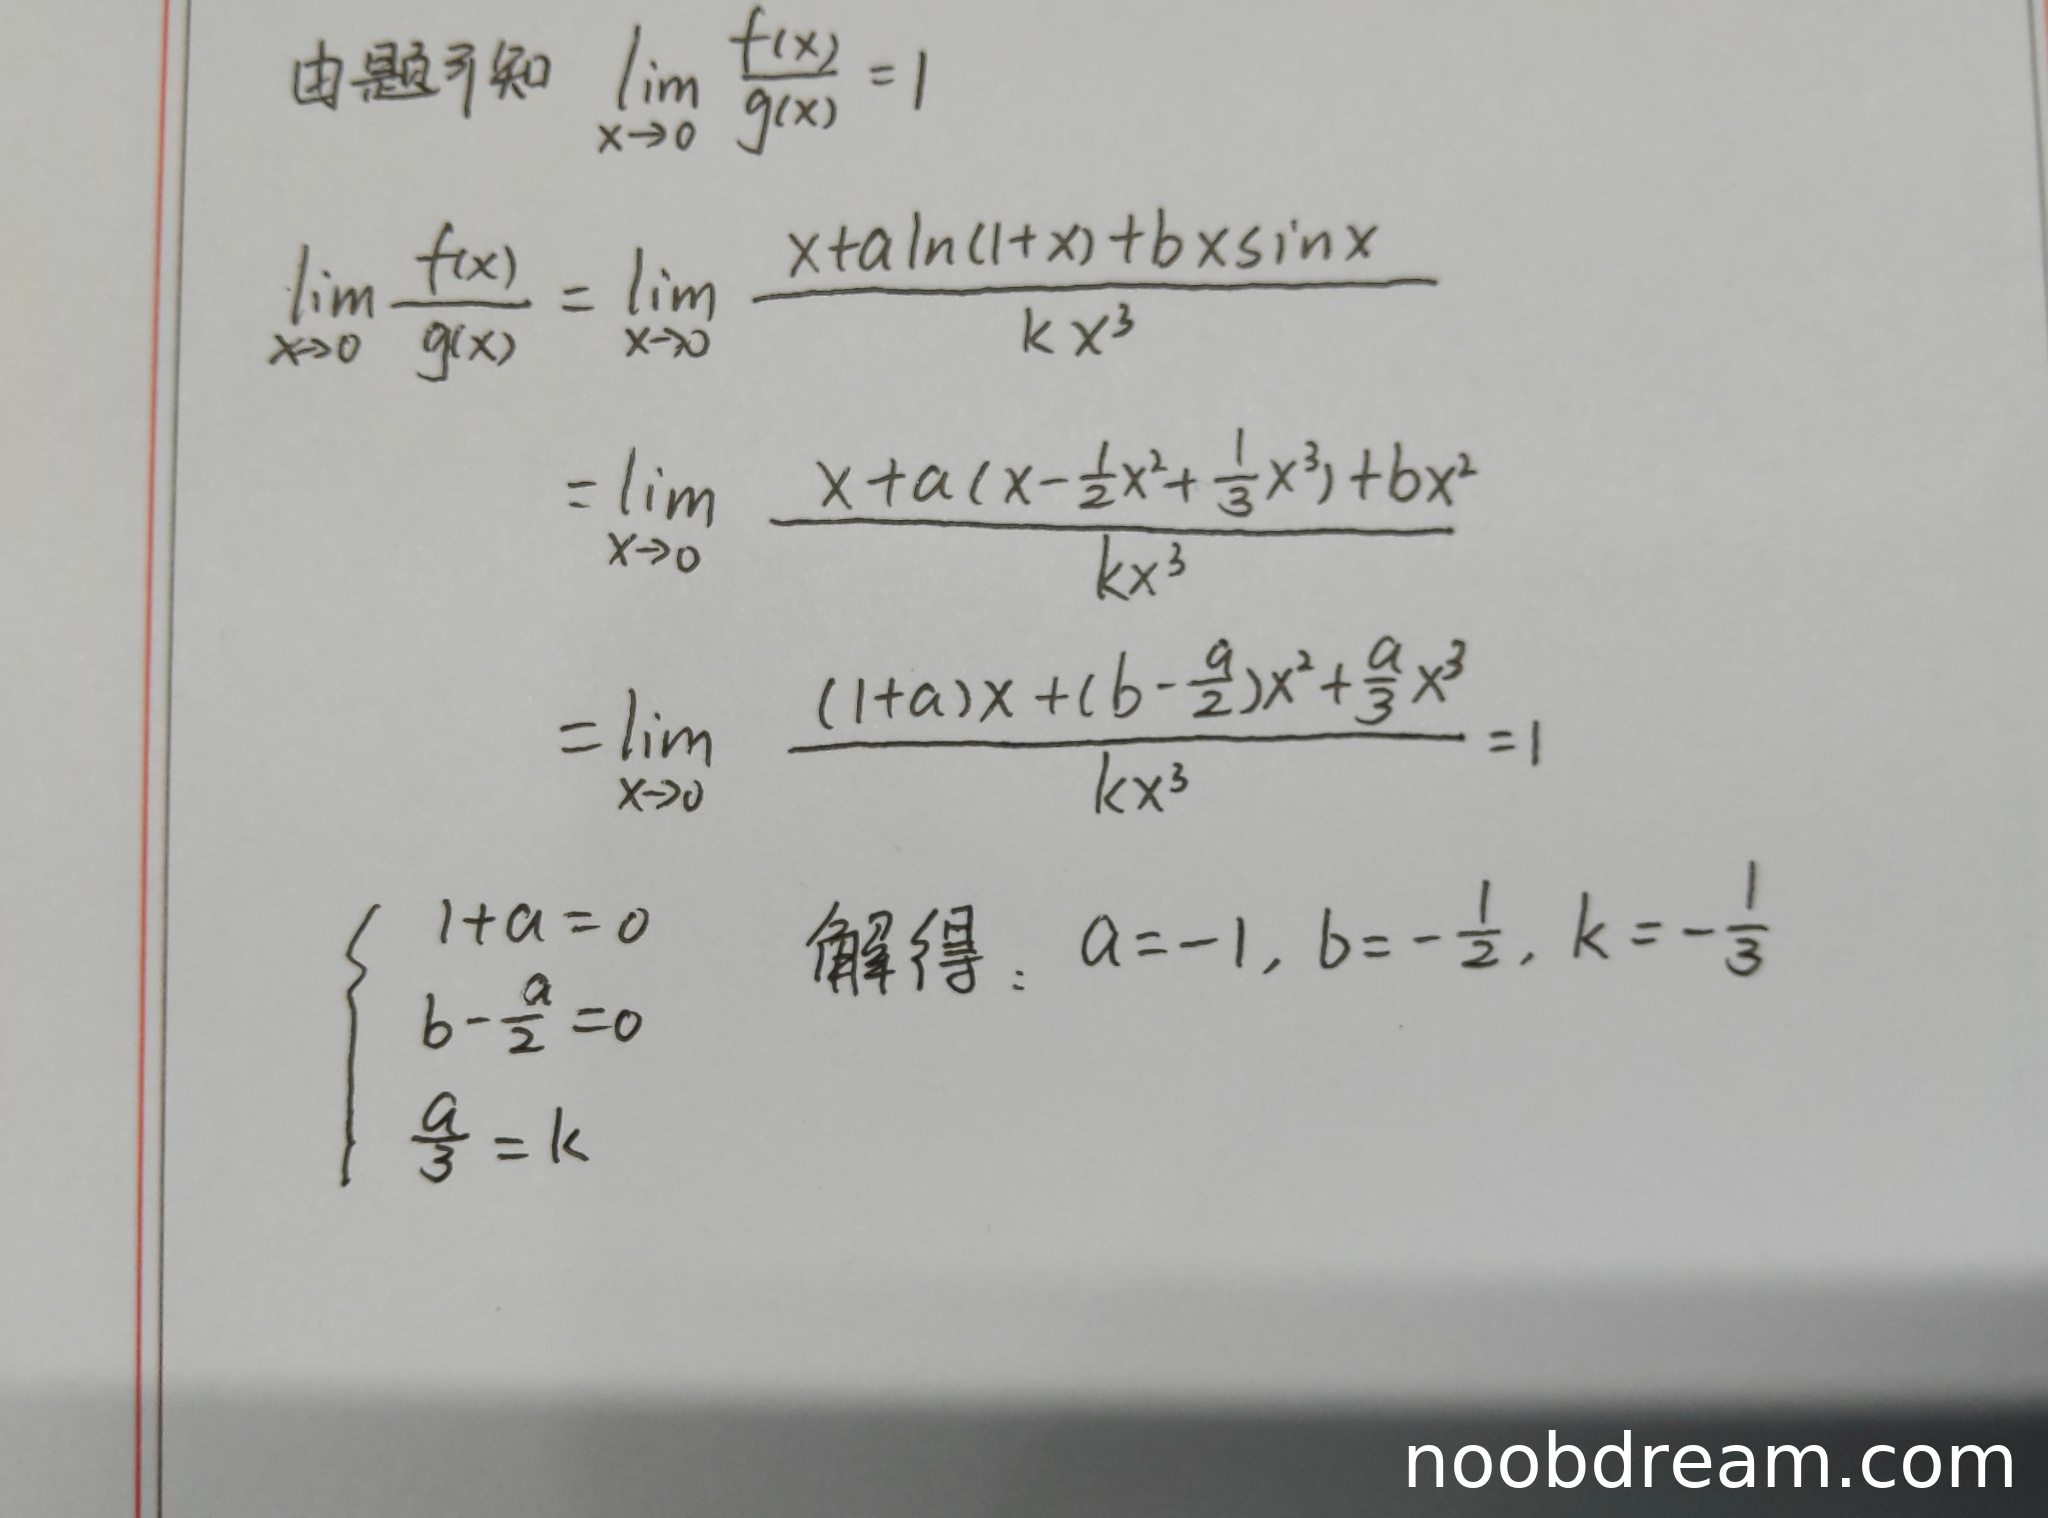 由题可知 lim x→0 f(x)/g(x) = 1
lim x→0 f(x)/g(x) = lim x→0 (x+aln(1+x)+bxsinx)/(kx³)
= lim x→0 (x+a(x-½x²+⅓x³)+bx²)/(kx³)
= lim x→0 ((1+a)x+(b-a/2)x²+a/3 x³)/(kx³) = 1
{ 1+a=0 解得: a=-1, b=-1/2, k=-1/3
b-a/2=0
a/3=k
noobdream.com